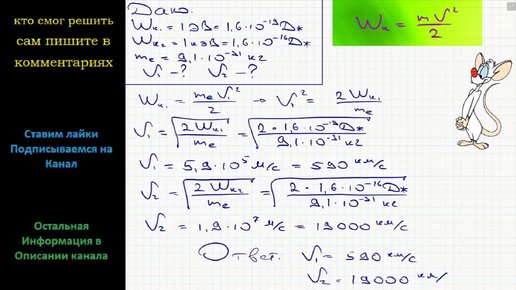 кто смог решить
сам пишите в
комментариях
Ставим лайки
Подписываемся на
Канал
Остальная
Информация в
Описании канала
Дано:
Wк₁ = 1 эВ = 1,6·10⁻¹⁹ Дж
Wк₂ = 1 кэВ = 1,6·10⁻¹⁶ Дж
mе = 9,1·10⁻³¹ кг
V₁ - ? V₂ - ?
Wк = mV²/2
Wк₁ = mеV₁²/2 → V₁² = 2Wк₁/mе
V₁ = √(2Wк₁/mе) = √(2·1,6·10⁻¹⁹ Дж/9,1·10⁻³¹ кг)
V₁ = 5,9·10⁵ м/с = 590 км/с
V₂ = √(2Wк₂/mе) = √(2·1,6·10⁻¹⁶ Дж/9,1·10⁻³¹ кг)
V₂ = 1,9·10⁷ м/с = 19000 км/с
Ответ: V₁ = 590 км/с
V₂ = 19000 км/